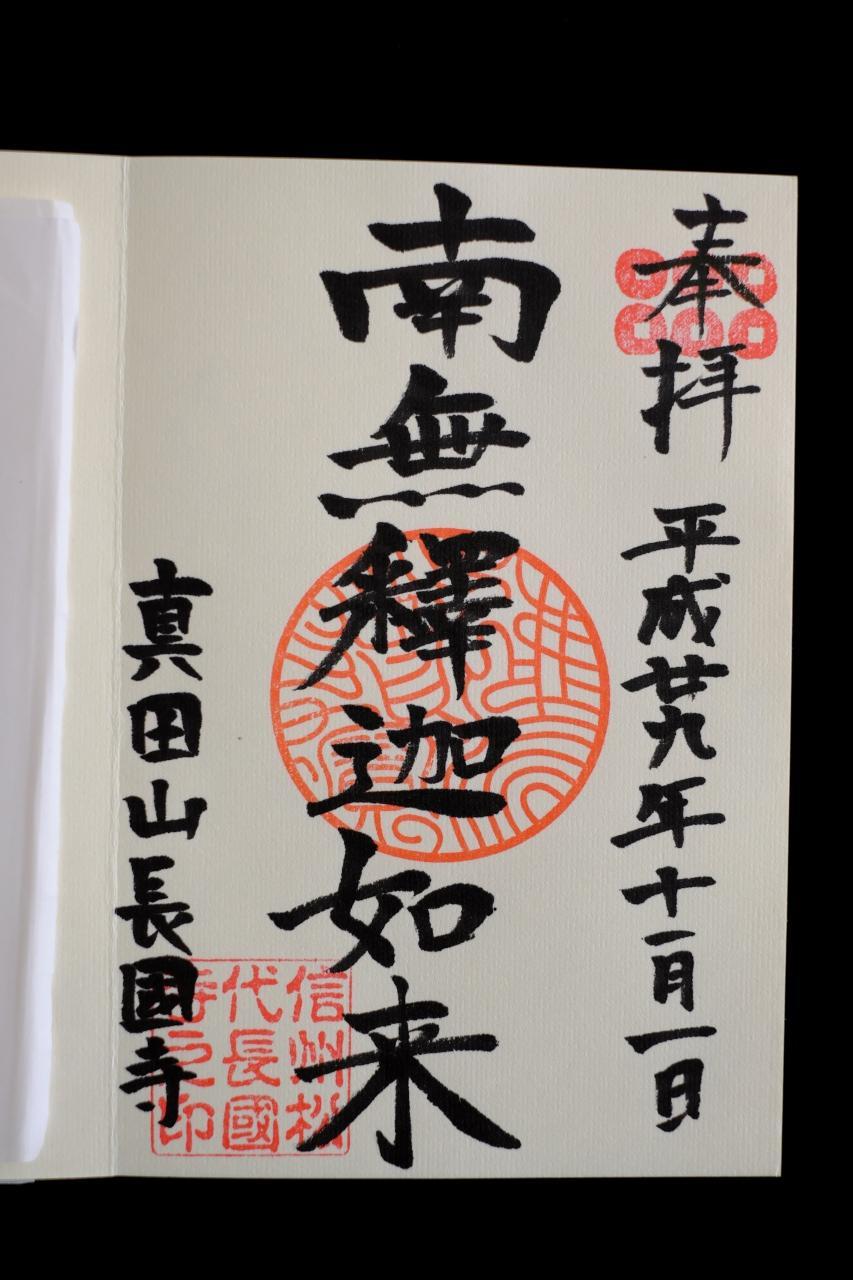 奉拝
平成廿九年十一月一日
南無釋迦如来
真田山長國寺
信州松
代長國
寺之印